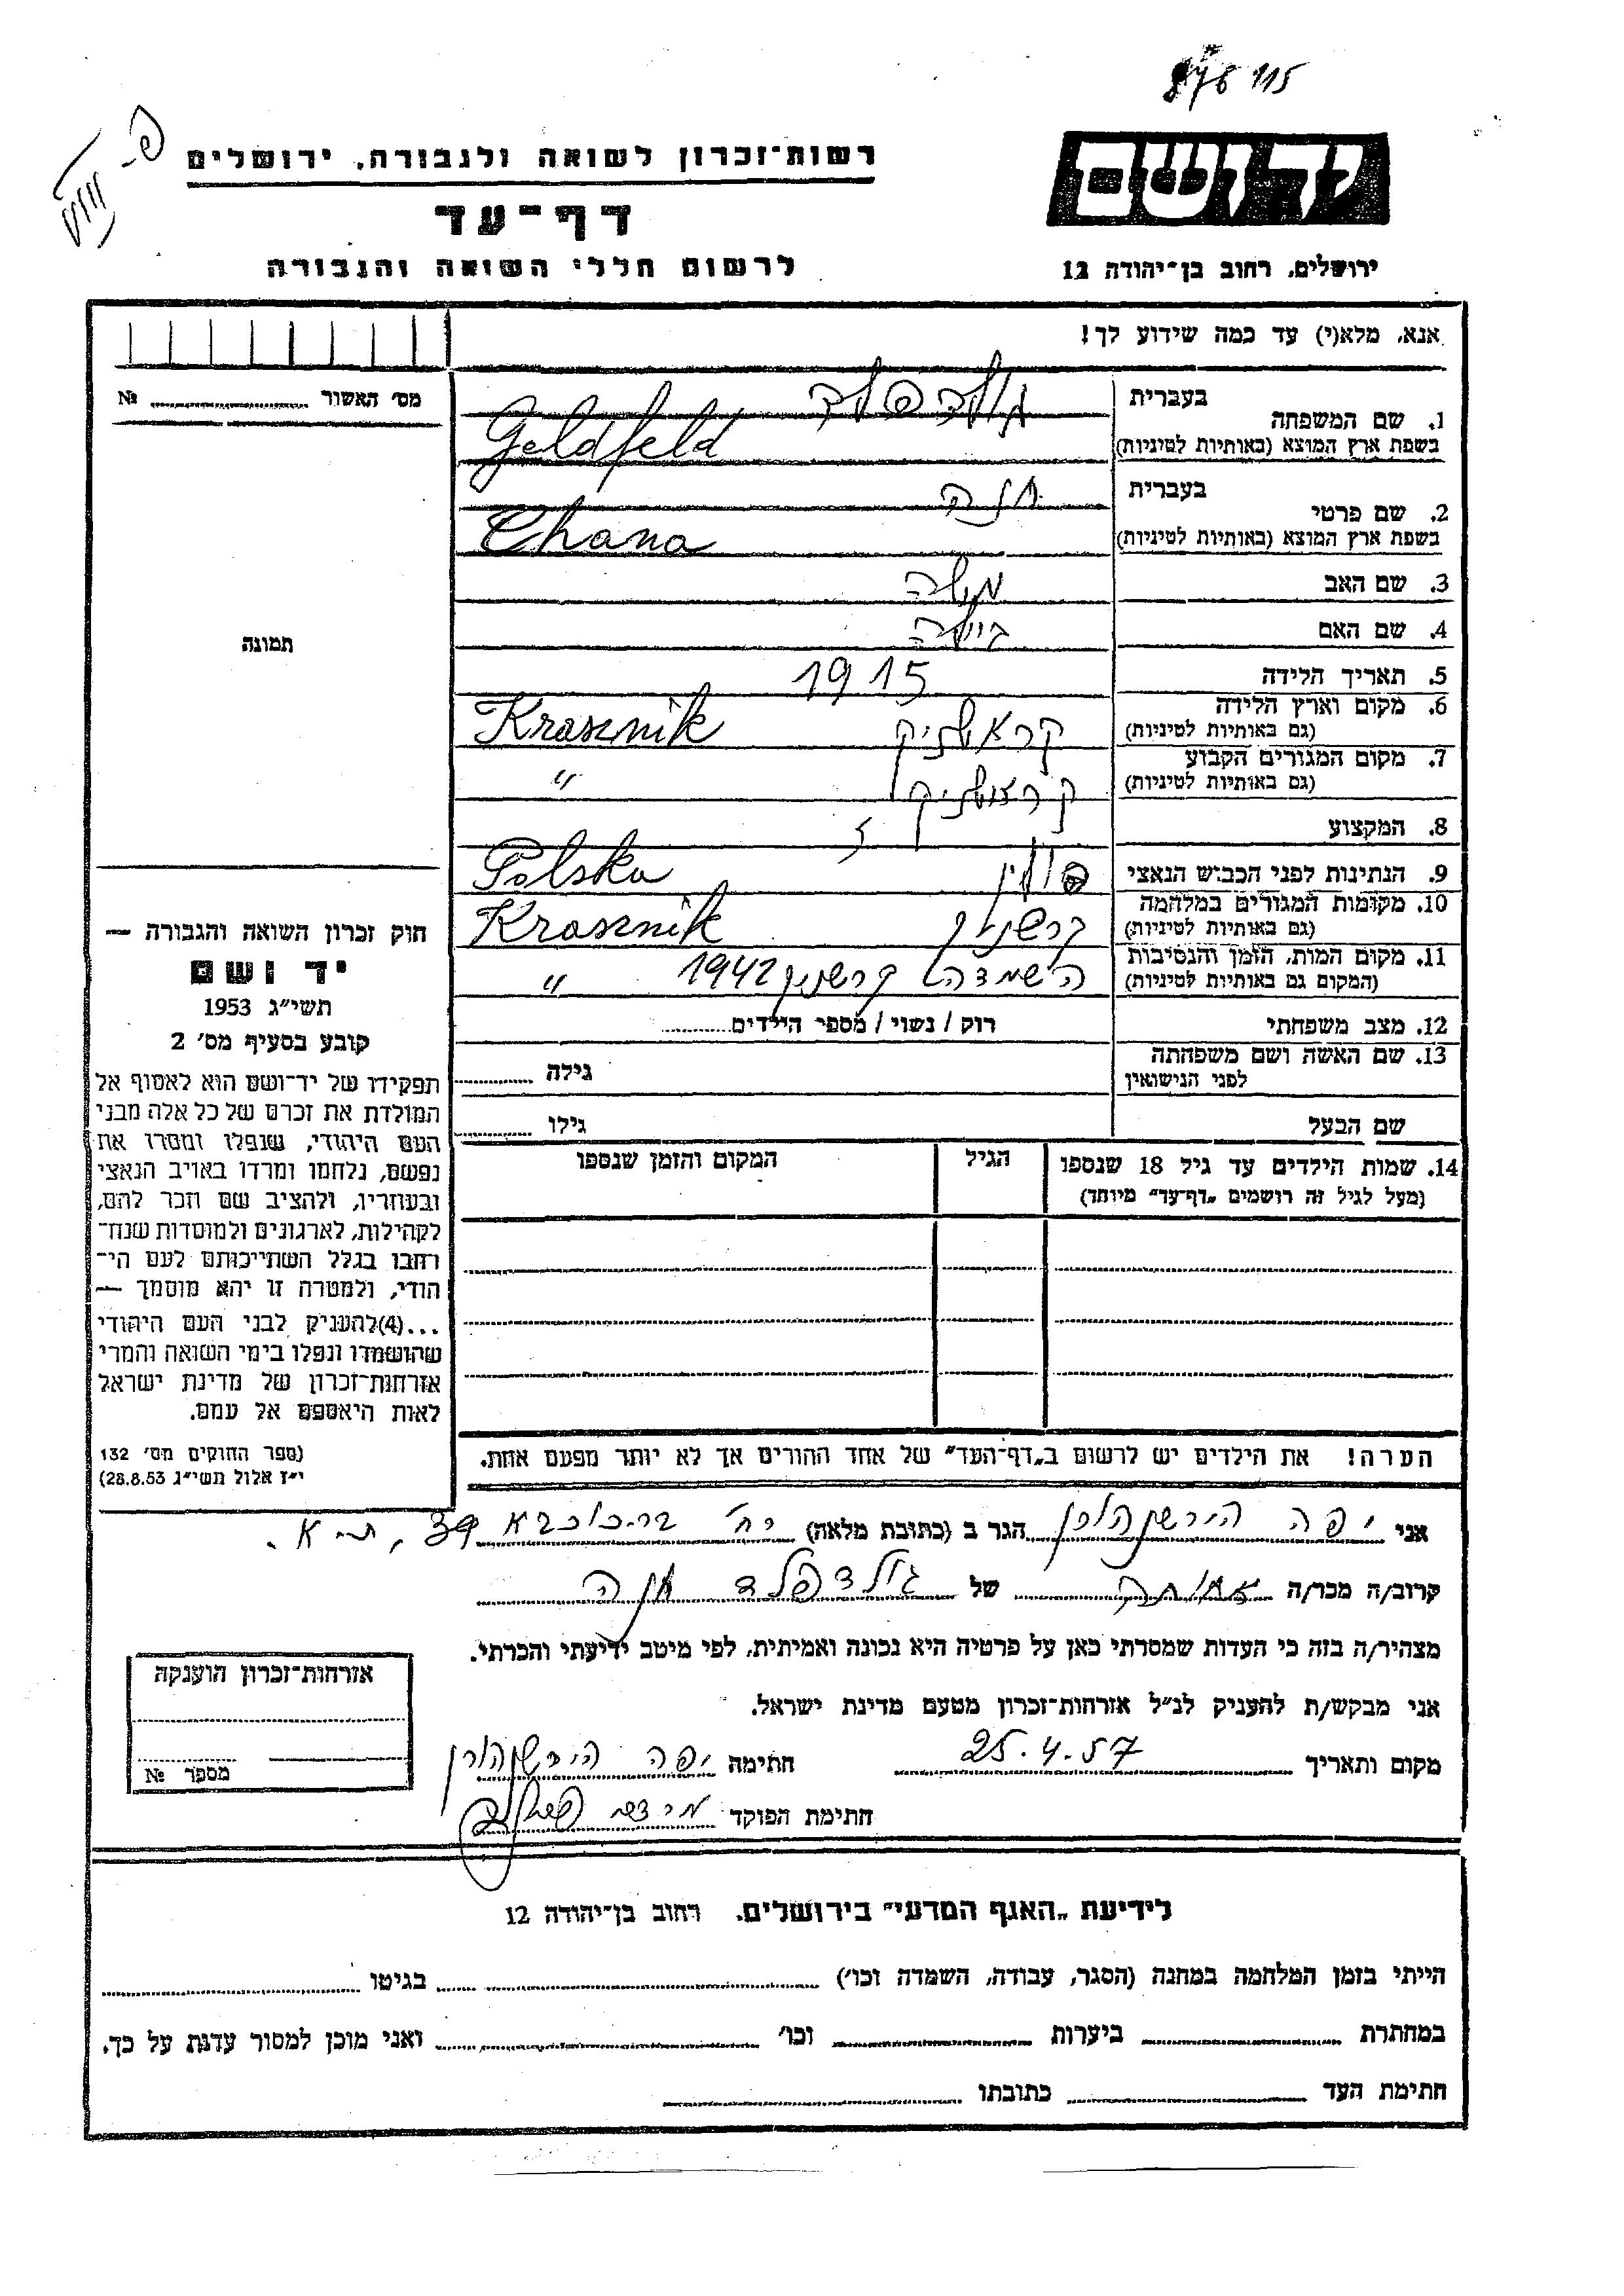 115 876
יד ושם
רשות־זכרון לשואה ולגבורה, ירושלים
דף־עד
לרשום חללי השואה והגבורה
ירושלים, רחוב בן־יהודה 12
אנא, מלא(י) עד כמה שידוע לך!
מס׳ האשור № 
1. שם המשפחה
בעברית גולדפלד
בשפת ארץ המוצא (באותיות לטיניות) Goldfeld
2. שם פרטי
בעברית חנה
בשפת ארץ המוצא (באותיות לטיניות) Chana
3. שם האב משה
4. שם האם ביילה
5. תאריך הלידה 1915
6. מקום וארץ הלידה קראשניק Krasznik
(גם באותיות לטיניות)
7. מקום המגורים הקבוע קראשניק "
(גם באותיות לטיניות)
8. המקצוע
9. הנתינות לפני הכבוש הנאצי פולין Polska
10. מקומות המגורים במלחמה קרשניק Krasznik
(גם באותיות לטיניות)
11. מקום המות, הזמן והנסיבות השמדה קרשניק 1942 "
(המקום גם באותיות לטיניות)
12. מצב משפחתי רוק / נשוי / מספר הילדים
13. שם האשה ושם משפחתה
לפני הנישואין גילה
שם הבעל גילו
14. שמות הילדים עד גיל 18 שנספו הגיל המקום והזמן שנספו
(מעל לגיל זה רושמים „דף־עד״ מיוחד)
הערה! את הילדים יש לרשום ב„דף־העד״ של אחד ההורים אך לא יותר מפעם אחת.
תמונה
חוק זכרון השואה והגבורה —
יד ושם
תשי״ג 1953
קובע בסעיף מס׳ 2
תפקידו של יד־ושם הוא לאסוף אל
המולדת את זכרם של כל אלה מבני
העם היהודי, שנפלו ומסרו את
נפשם, נלחמו ומרדו באויב הנאצי
ובעוזריו, ולהציב שם וזכר להם,
לקהילות, לארגונים ולמוסדות שנח־
רבו בגלל השתייכותם לעם הי־
הודי, ולמטרה זו יהא מוסמך —
...(4)להעניק לבני העם היהודי
שהושמדו ונפלו בימי השואה והמרי
אזרחות־זכרון של מדינת ישראל
לאות היאספם אל עמם.
(ספר החוקים מס׳ 132
י״ז אלול תשי״ג 28.8.53)
אני יפה הירשנהורן הגר ב (כתובת מלאה) רח׳ בר כוכבא 39, ת-א.
קרוב/ה מכר/ה אחותה של גולדפלד חנה
מצהיר/ה בזה כי העדות שמסרתי כאן על פרטיה היא נכונה ואמיתית, לפי מיטב ידיעתי והכרתי.
אני מבקש/ת להעניק לנ״ל אזרחות־זכרון מטעם מדינת ישראל.
מקום ותאריך 25.4.57 חתימה יפה הירשנהורן
חתימת הפוקד
אזרחות־זכרון הוענקה
מספר № 
לידיעת „האגף המדעי״ בירושלים, רחוב בן־יהודה 12
הייתי בזמן המלחמה במחנה (הסגר, עבודה, השמדה וכו׳) בגיטו
במחתרת ביערות וכו׳ ואני מוכן למסור עדות על כך.
חתימת העד כתובתו